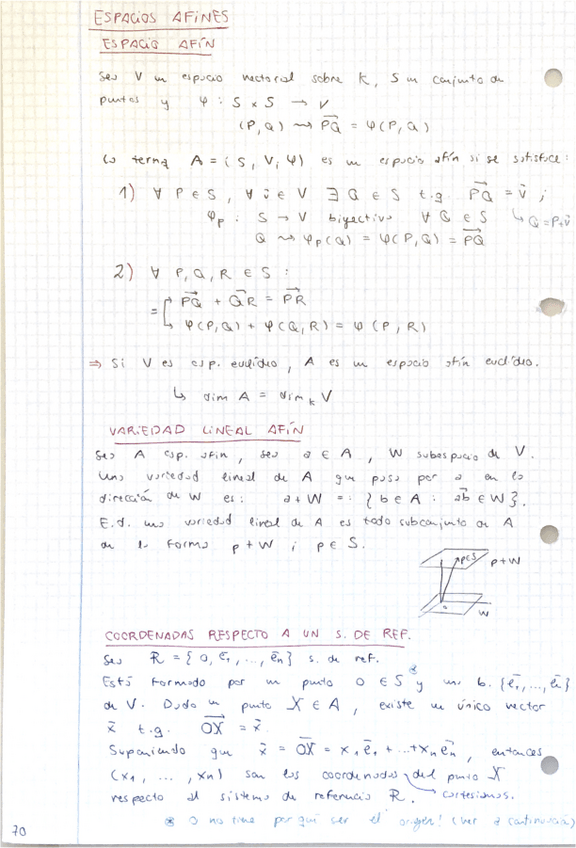 ESPACIOS AFINES
ESPACIO AFÍN
Sea V un espacio vectorial sobre K, S un conjunto de
puntos y φ : S x S → V
(P, Q) ⇝ PQ⃗ = φ(P, Q)
la terna A = (S, V, φ) es un espacio afín si se satisface:
1) ∀ P ∈ S, ∀ v̄ ∈ V ∃ Q ∈ S t.q. PQ⃗ = v̄ ;
φp : S → V biyectiva ∀ Q ∈ S ↳ Q = P + v̄
Q ⇝ φp(Q) = φ(P, Q) = PQ⃗
2) ∀ P, Q, R ∈ S :
PQ⃗ + QR⃗ = PR⃗
= ↳ φ(P, Q) + φ(Q, R) = φ(P, R)
⇒ Si V es esp. euclídeo, A es un espacio afín euclídeo.
↳ dim A = dim_K V
VARIEDAD LINEAL AFÍN
Sea A esp. afín, sea a ∈ A, W subespacio de V.
Una variedad lineal de A que pasa por a en la
dirección de W es: a + W =: { b ∈ A : ab⃗ ∈ W }.
E.d. una variedad lineal de A es todo subconjunto de A
de la forma p + W ; p ∈ S.
p∈S p + W
o
W
COORDENADAS RESPECTO A UN S. DE REF.
Sea R = { O, ē₁, ..., ēn } s. de ref.
Está formado por un punto O ∈ S ⊛ y una b. { ē₁, ..., ēn }
de V. Dado un punto X ∈ A, existe un único vector
x̄ t.q. OX⃗ = x̄.
Suponiendo que x̄ = OX⃗ = x₁ē₁ + ... + xnēn, entonces
(x₁, ..., xn) son las coordenadas del punto X
respecto al sistema de referencia R. cartesianas.
⊛ O no tiene por qué ser el origen! (ver a continuación)
70